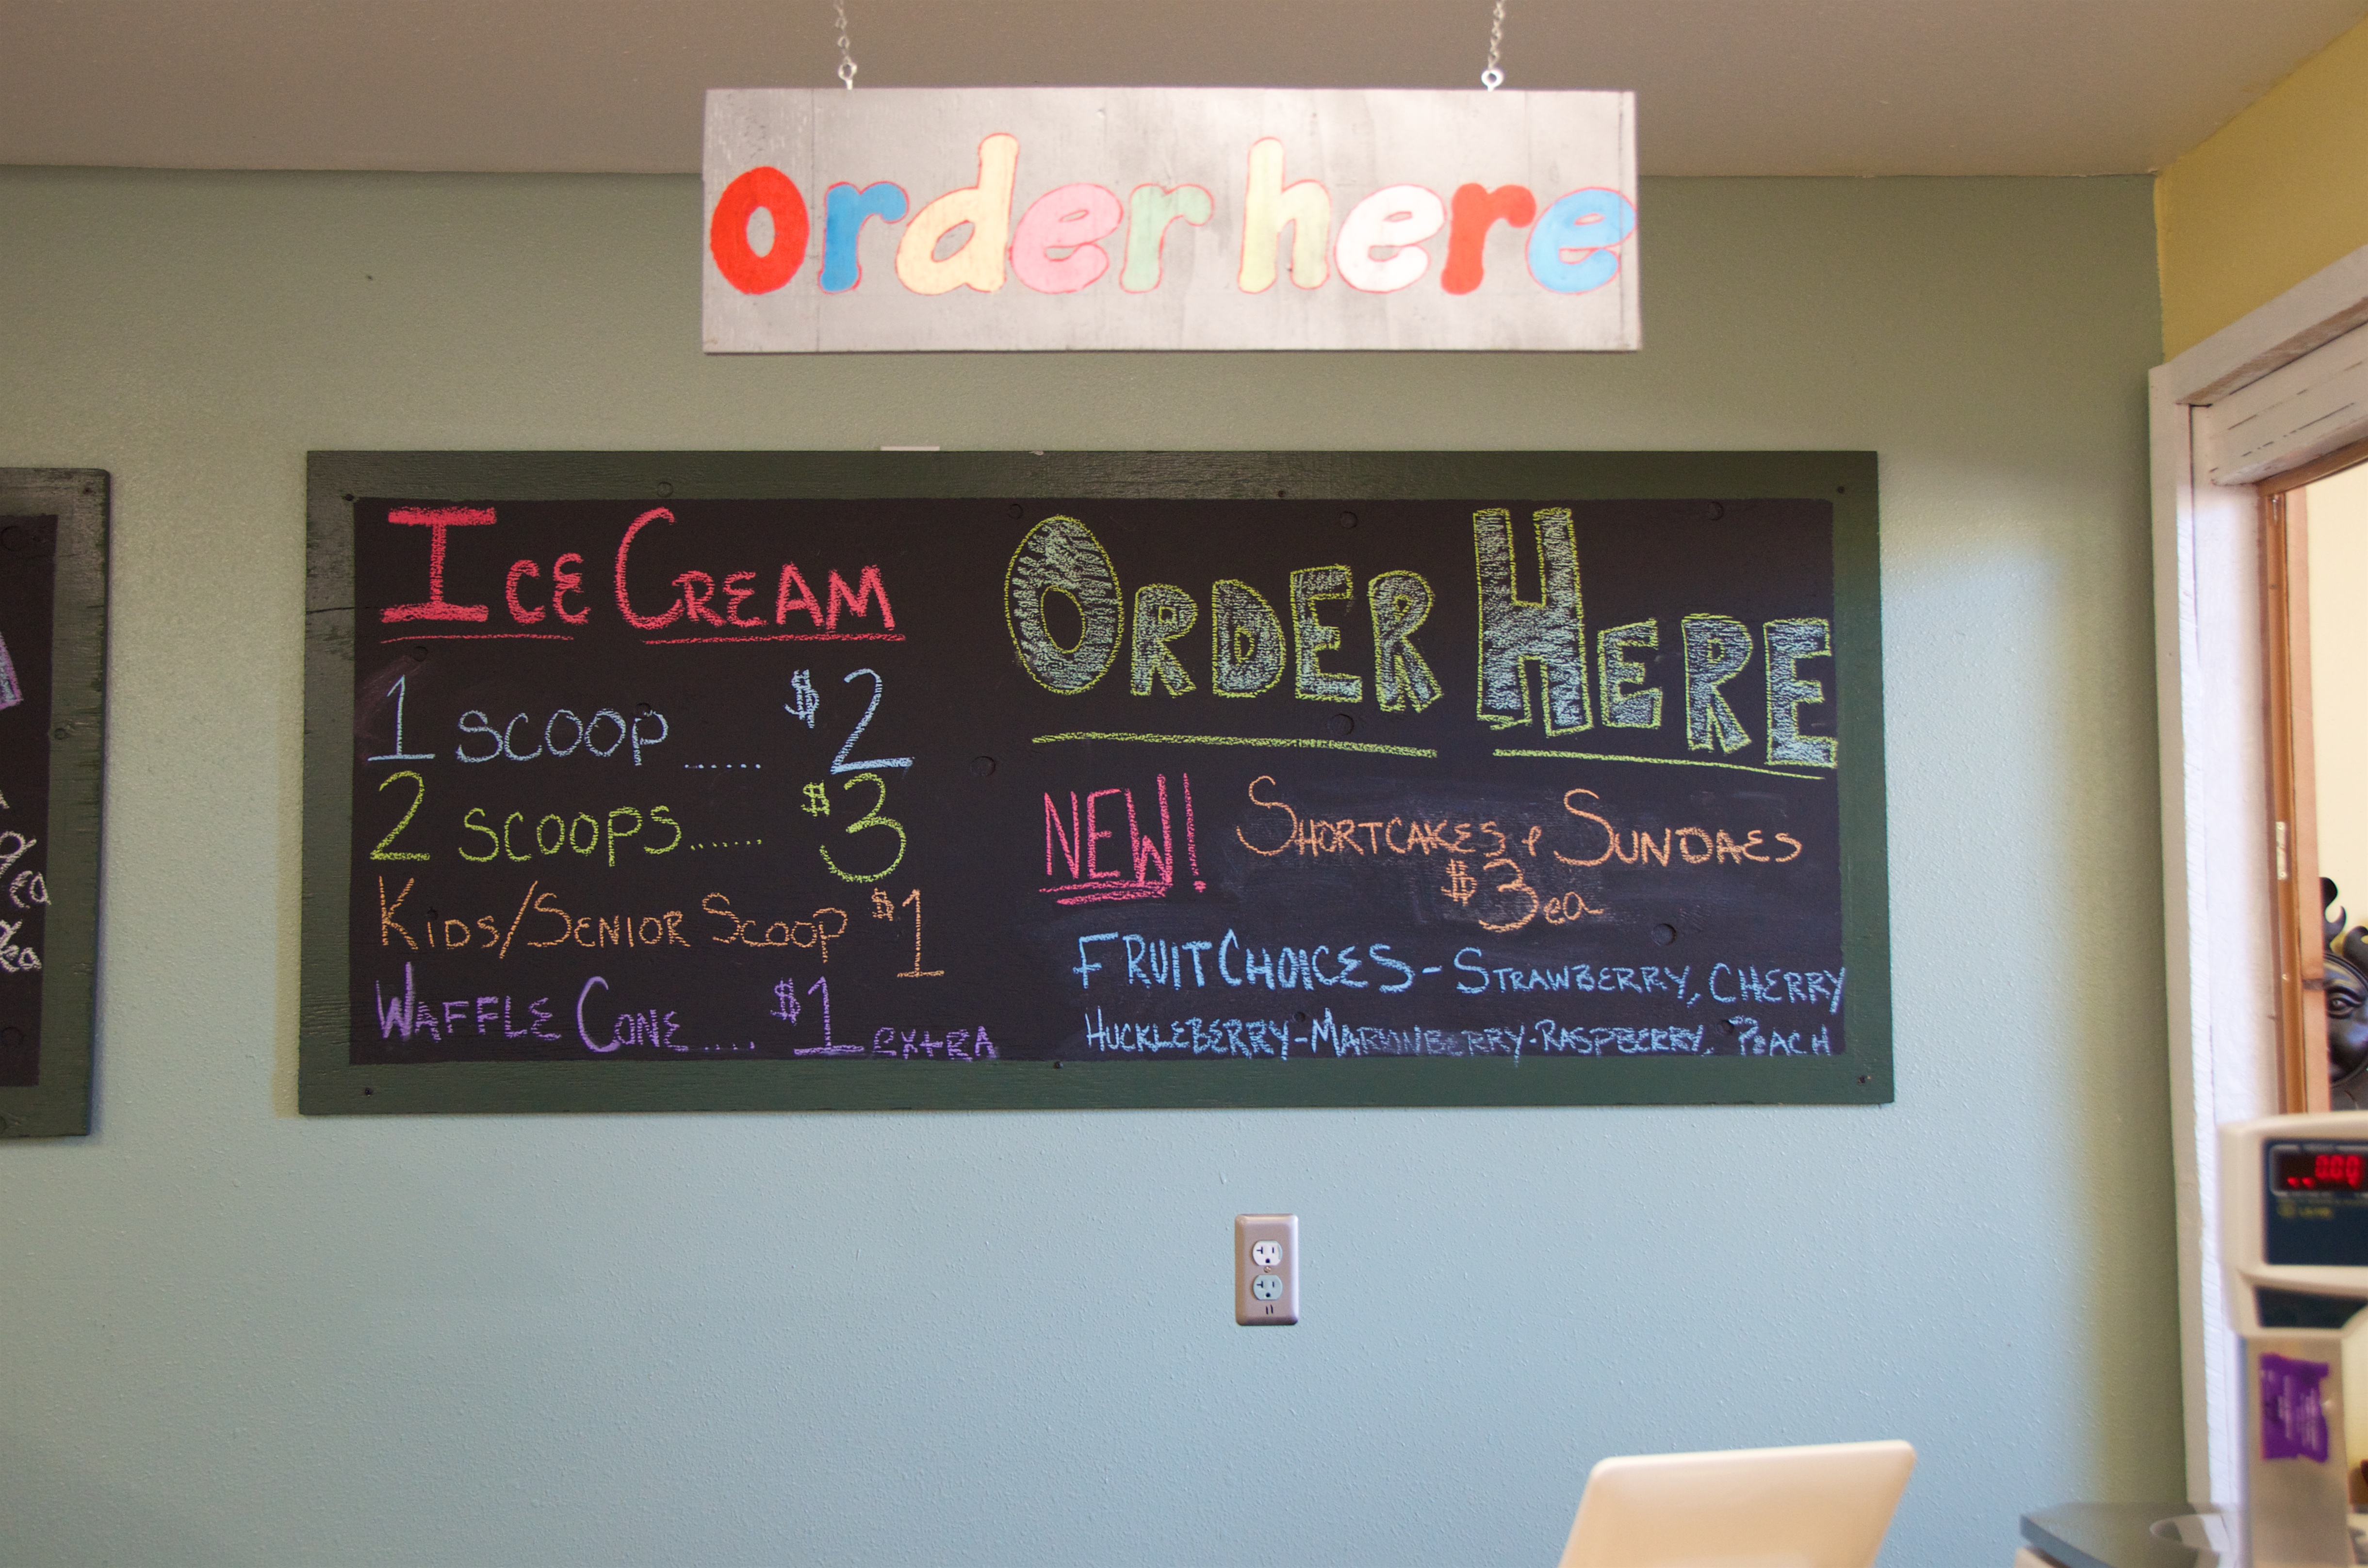 order here
Ice Cream
1 scoop ...... $2
2 scoops....... $3
Kids/Senior Scoop $1
Waffle Cone .... $1 extra
Order Here
NEW! Shortcakes & Sundaes
$3 ea
Fruit Choices - Strawberry, Cherry
Huckleberry - Marionberry - Raspberry, Peach